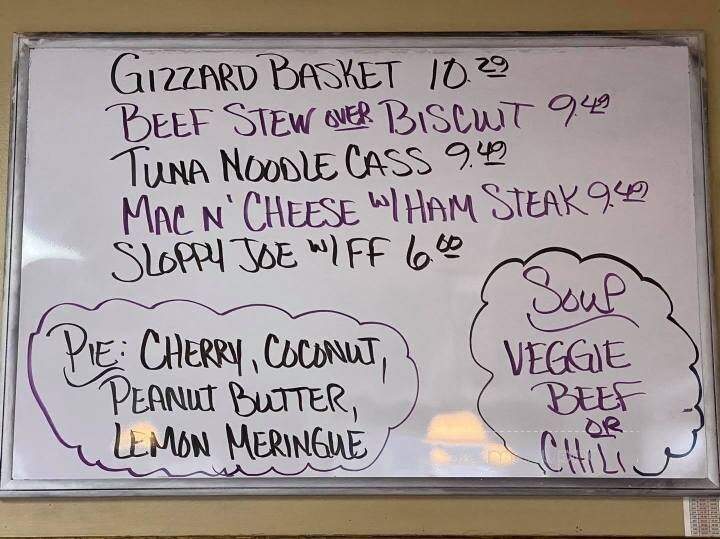 GIZZARD BASKET 10.29
BEEF STEW OVER BISCUIT 9.49
TUNA NOODLE CASS 9.49
MAC N' CHEESE W/ HAM STEAK 9.49
SLOPPY JOE W/ FF 6.00
PIE: CHERRY, COCONUT,
PEANUT BUTTER,
LEMON MERINGUE
SOUP
VEGGIE
BEEF
OR
CHILI